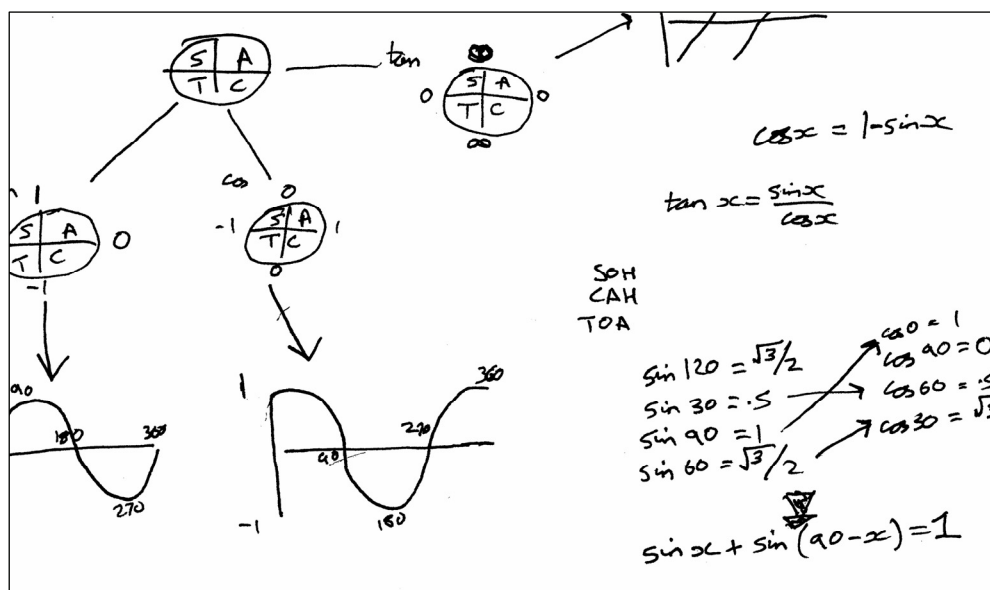 S A
T C
tan
∞
S A
T C
0 0
∞
cos x = 1-sin x
tan x = sin x / cos x
1
S A
T
C
0
-1
cos
0
S A
T C
-1 1
0
SOH
CAH
TOA
sin 120 = √3/2
sin 30 = .5
sin 90 = 1
sin 60 = √3/2
cos 0 = 1
cos 90 = 0
cos 60 = .5
cos 30 = √3
sin x + sin (90 - x) = 1
90
180
360
270
1
360
90
270
180
-1